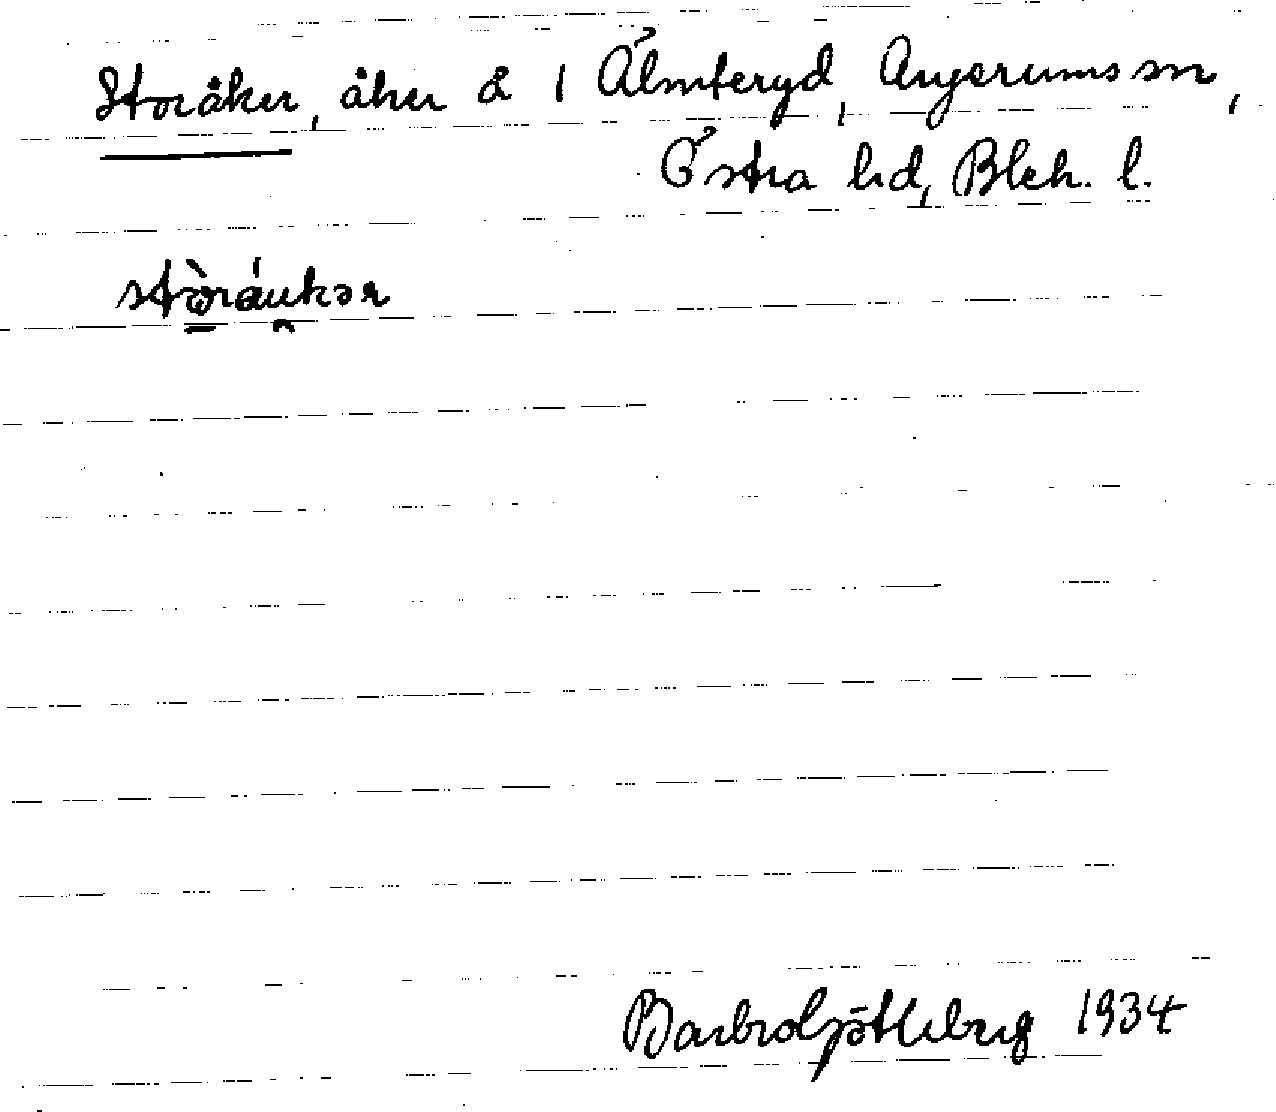 Storåker, åker å 1 Älmteryd, Augerums sn,
Östra hd, Blek. l.
stòráukər
Barbro Götleberg 1934